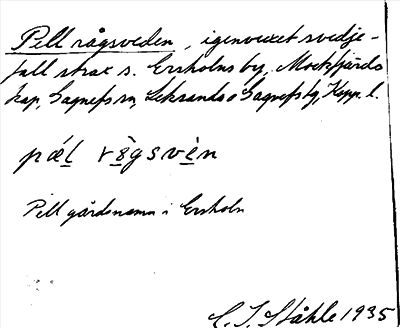 Pell rågsveden, igenvuxet svedje-
fall strax s. Ersholns by, Mockfjärds
kap, Gagnefs sn, Leksands o Gagnefs tg, Kopp. l.
pæl rågsvèn
Pell gårdsnamn i Ersholn
C. I. Ståhle 1935